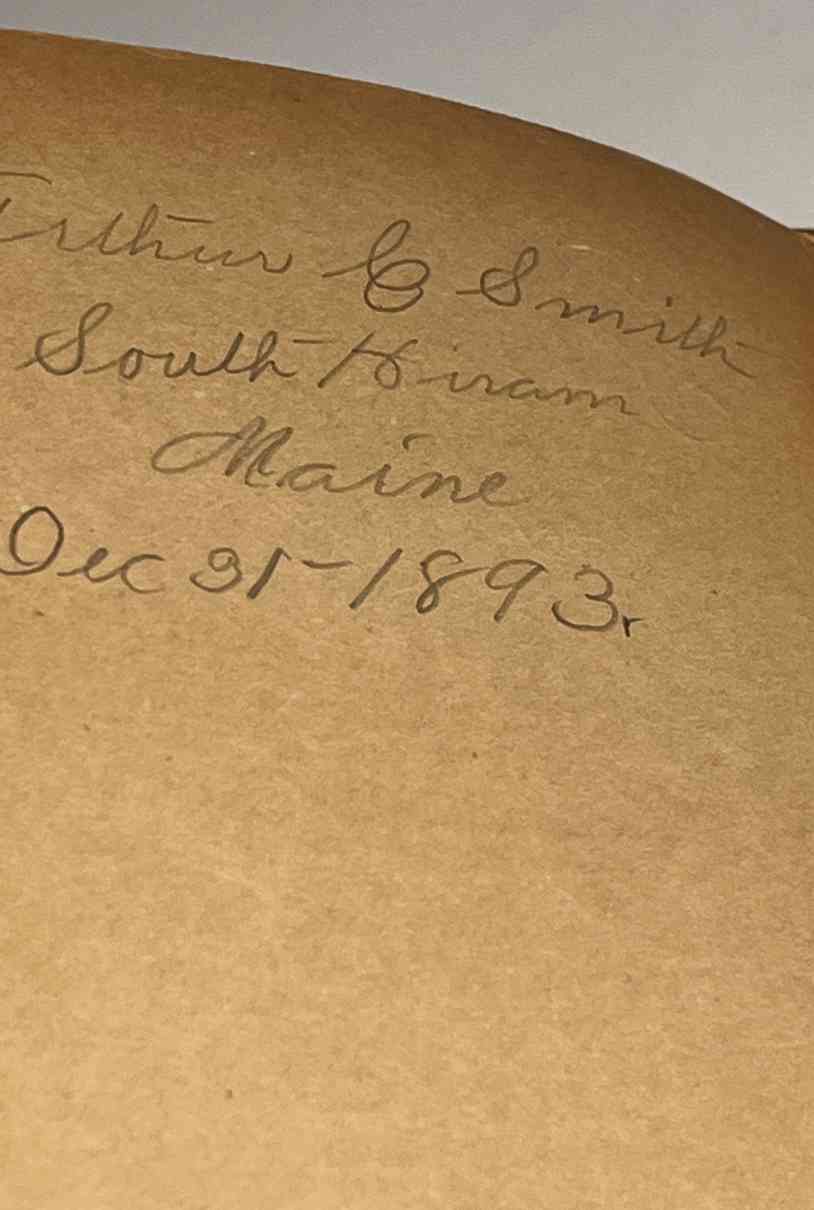 Arthur C Smith
South Hiram
Maine
Dec 31-1893.